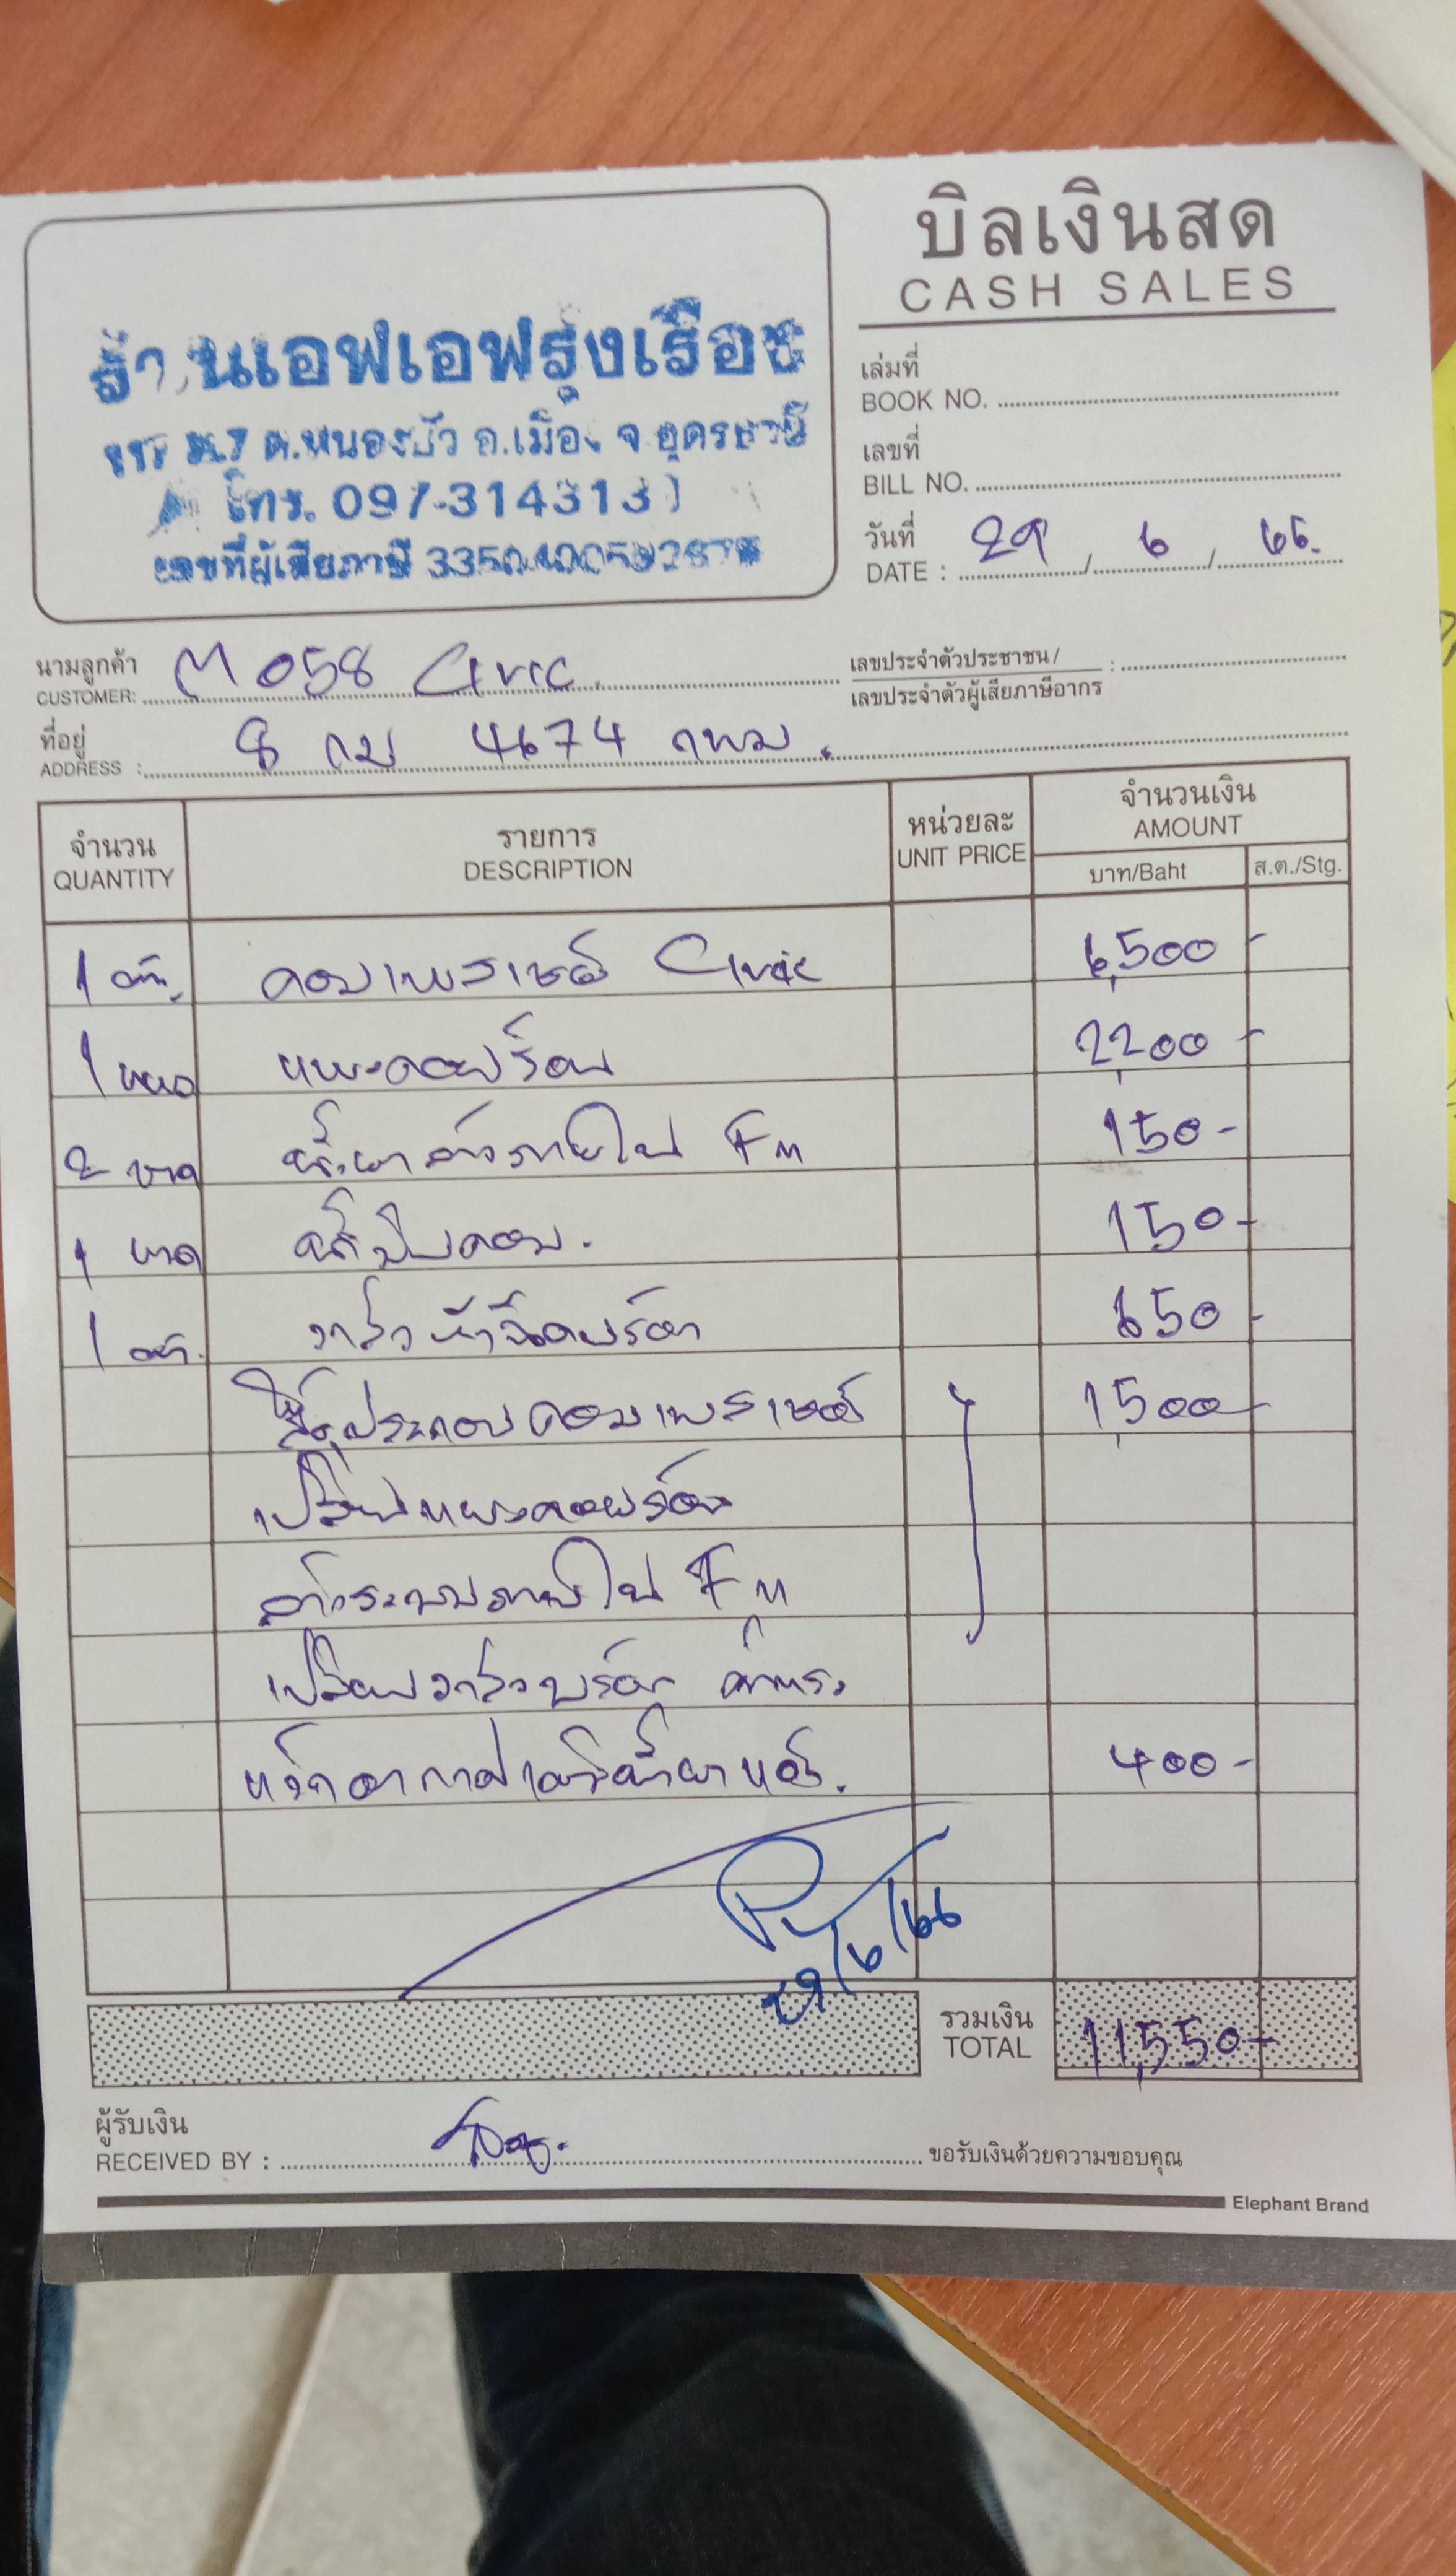 บิลเงินสด
CASH SALES
ร้านเอฟเอฟรุ่งเรือง
ม.7 ต.หนองบัว อ.เมือง จ.อุดรธานี
โทร. 097-314313
เลขที่ผู้เสียภาษี
เล่มที่
BOOK NO.
เลขที่
BILL NO.
วันที่
DATE : 29 / 6 / 66.
นามลูกค้า
CUSTOMER: M 058 Civic
เลขประจำตัวประชาชน/ :
เลขประจำตัวผู้เสียภาษีอากร
ที่อยู่
ADDRESS : 8 กม 4674 กทม.
จำนวน รายการ หน่วยละ จำนวนเงิน
QUANTITY DESCRIPTION UNIT PRICE AMOUNT
บาท/Baht ส.ต./Stg.
1 ตัว คอมเพรสเซอร์ Civic 6,500 -
1 แผงคอยร้อน 2,200 -
2 ขวด น้ำยาล้างภายใน 150 -
1 ขวด น้ำมันคอม. 150 -
1 ตัว. วาล์วหัวฉีดแอร์ 650 -
ประกอบคอมเพรสเซอร์ 1,500 -
เปลี่ยนแผงคอยร้อน
ล้างระบบภายใน
เปลี่ยนวาล์วแอร์ ค่าแรง
แว็คอากาศเติมน้ำยาแอร์. 400 -
29/6/66
รวมเงิน
TOTAL 11,550 -
ผู้รับเงิน
RECEIVED BY :
ขอรับเงินด้วยความขอบคุณ
Elephant Brand